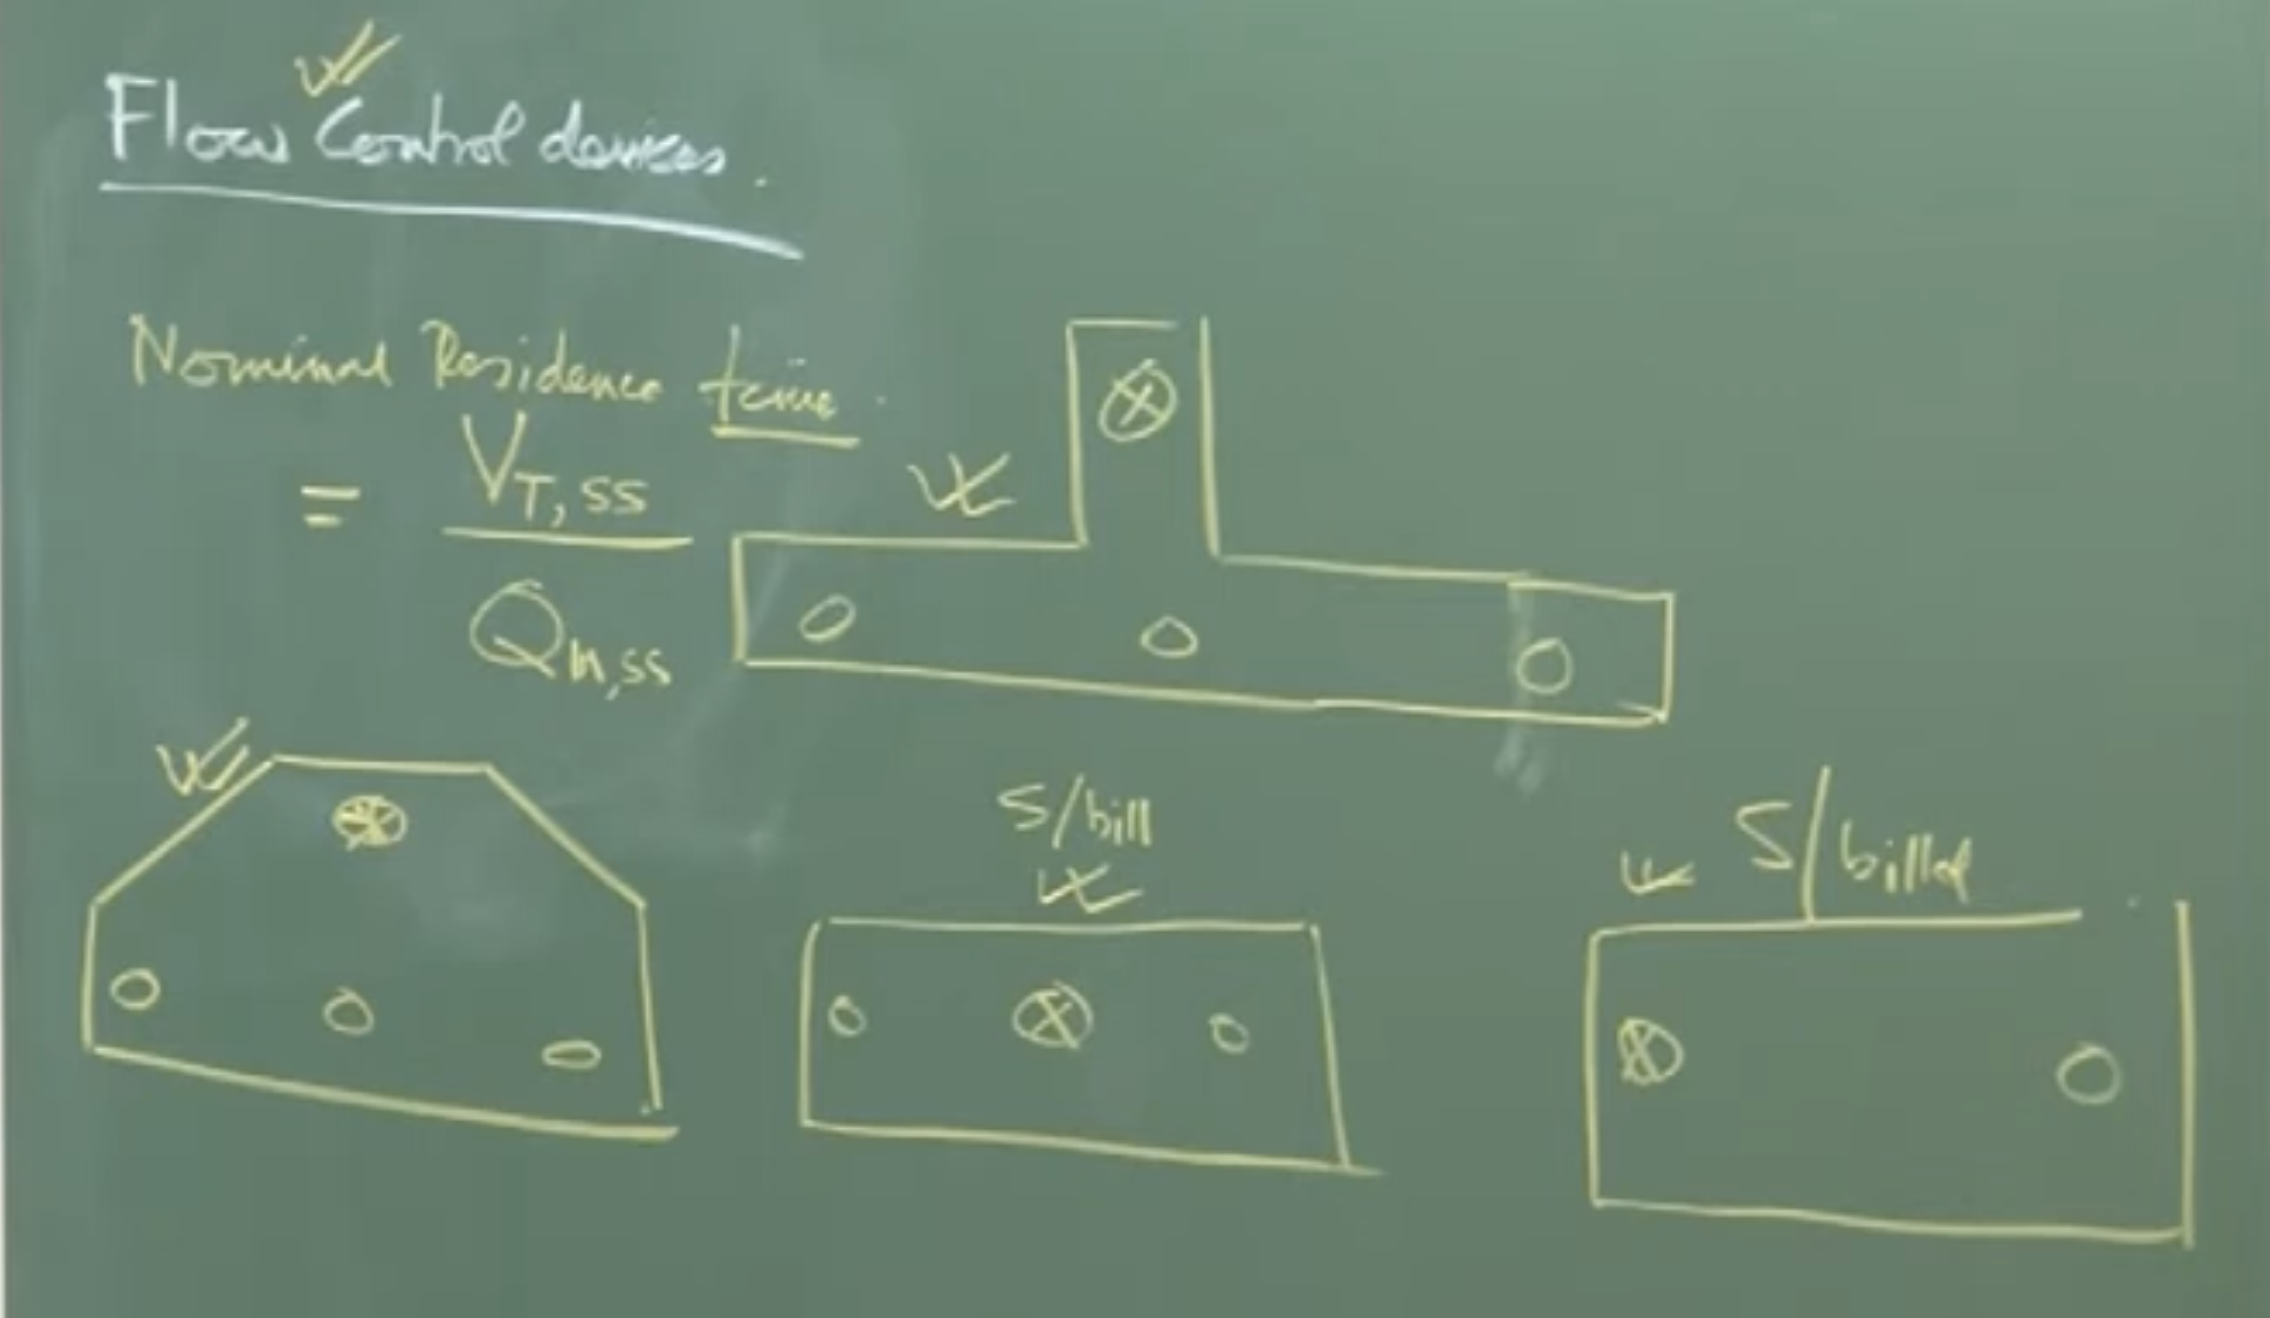 Flow Control devices.
Nominal Residence time.
= V_T,ss
Q_in,ss
S/bill
S/billet